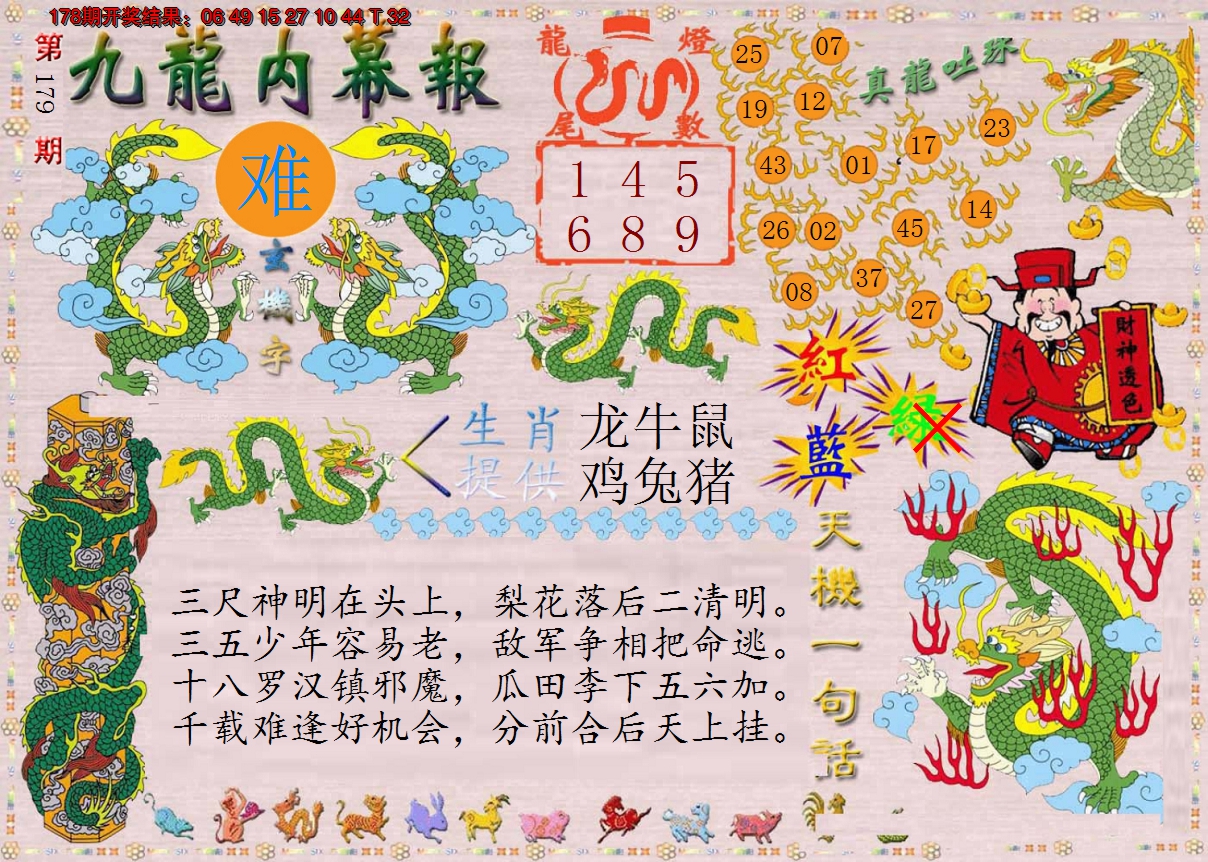 178期开奖结果：06 49 15 27 10 44 T 32
第179期
九龍内幕報
难
玄機字
龍燈尾數
1 4 5
6 8 9
真龍吐珠
25 07
19 12
43 01 17 23
26 02 45 14
08 37 27
財神透色
紅
綠
藍
生肖 龙牛鼠
提供 鸡兔猪
天機一句话
三尺神明在头上，梨花落后二清明。
三五少年容易老，敌军争相把命逃。
十八罗汉镇邪魔，瓜田李下五六加。
千载难逢好机会，分前合后天上挂。